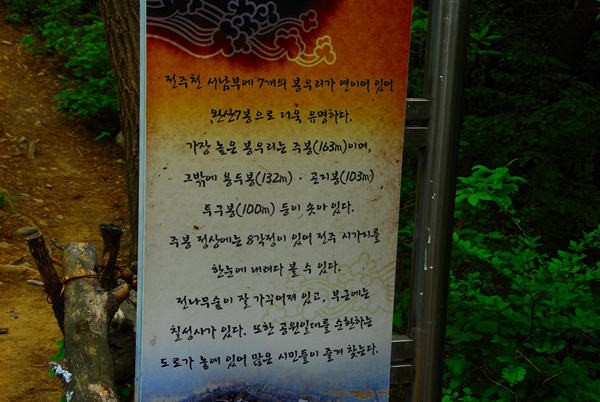 전주천 서남부에 7개의 봉우리가 연이어 있어
완산7봉으로 더욱 유명하다.
가장 높은 봉우리는 주봉(163m)이며,
그밖에 용두봉(132m) · 곤지봉(103m)
투구봉(100m) 등이 솟아 있다.
주봉 정상에는 8각정이 있어 전주 시가지를
한눈에 내려다 볼 수 있다.
전나무숲이 잘 가꾸어져 있고, 부근에는
칠성사가 있다. 또한 공원일대를 순환하는
도로가 놓여 있어 많은 시민들이 즐겨 찾는다.